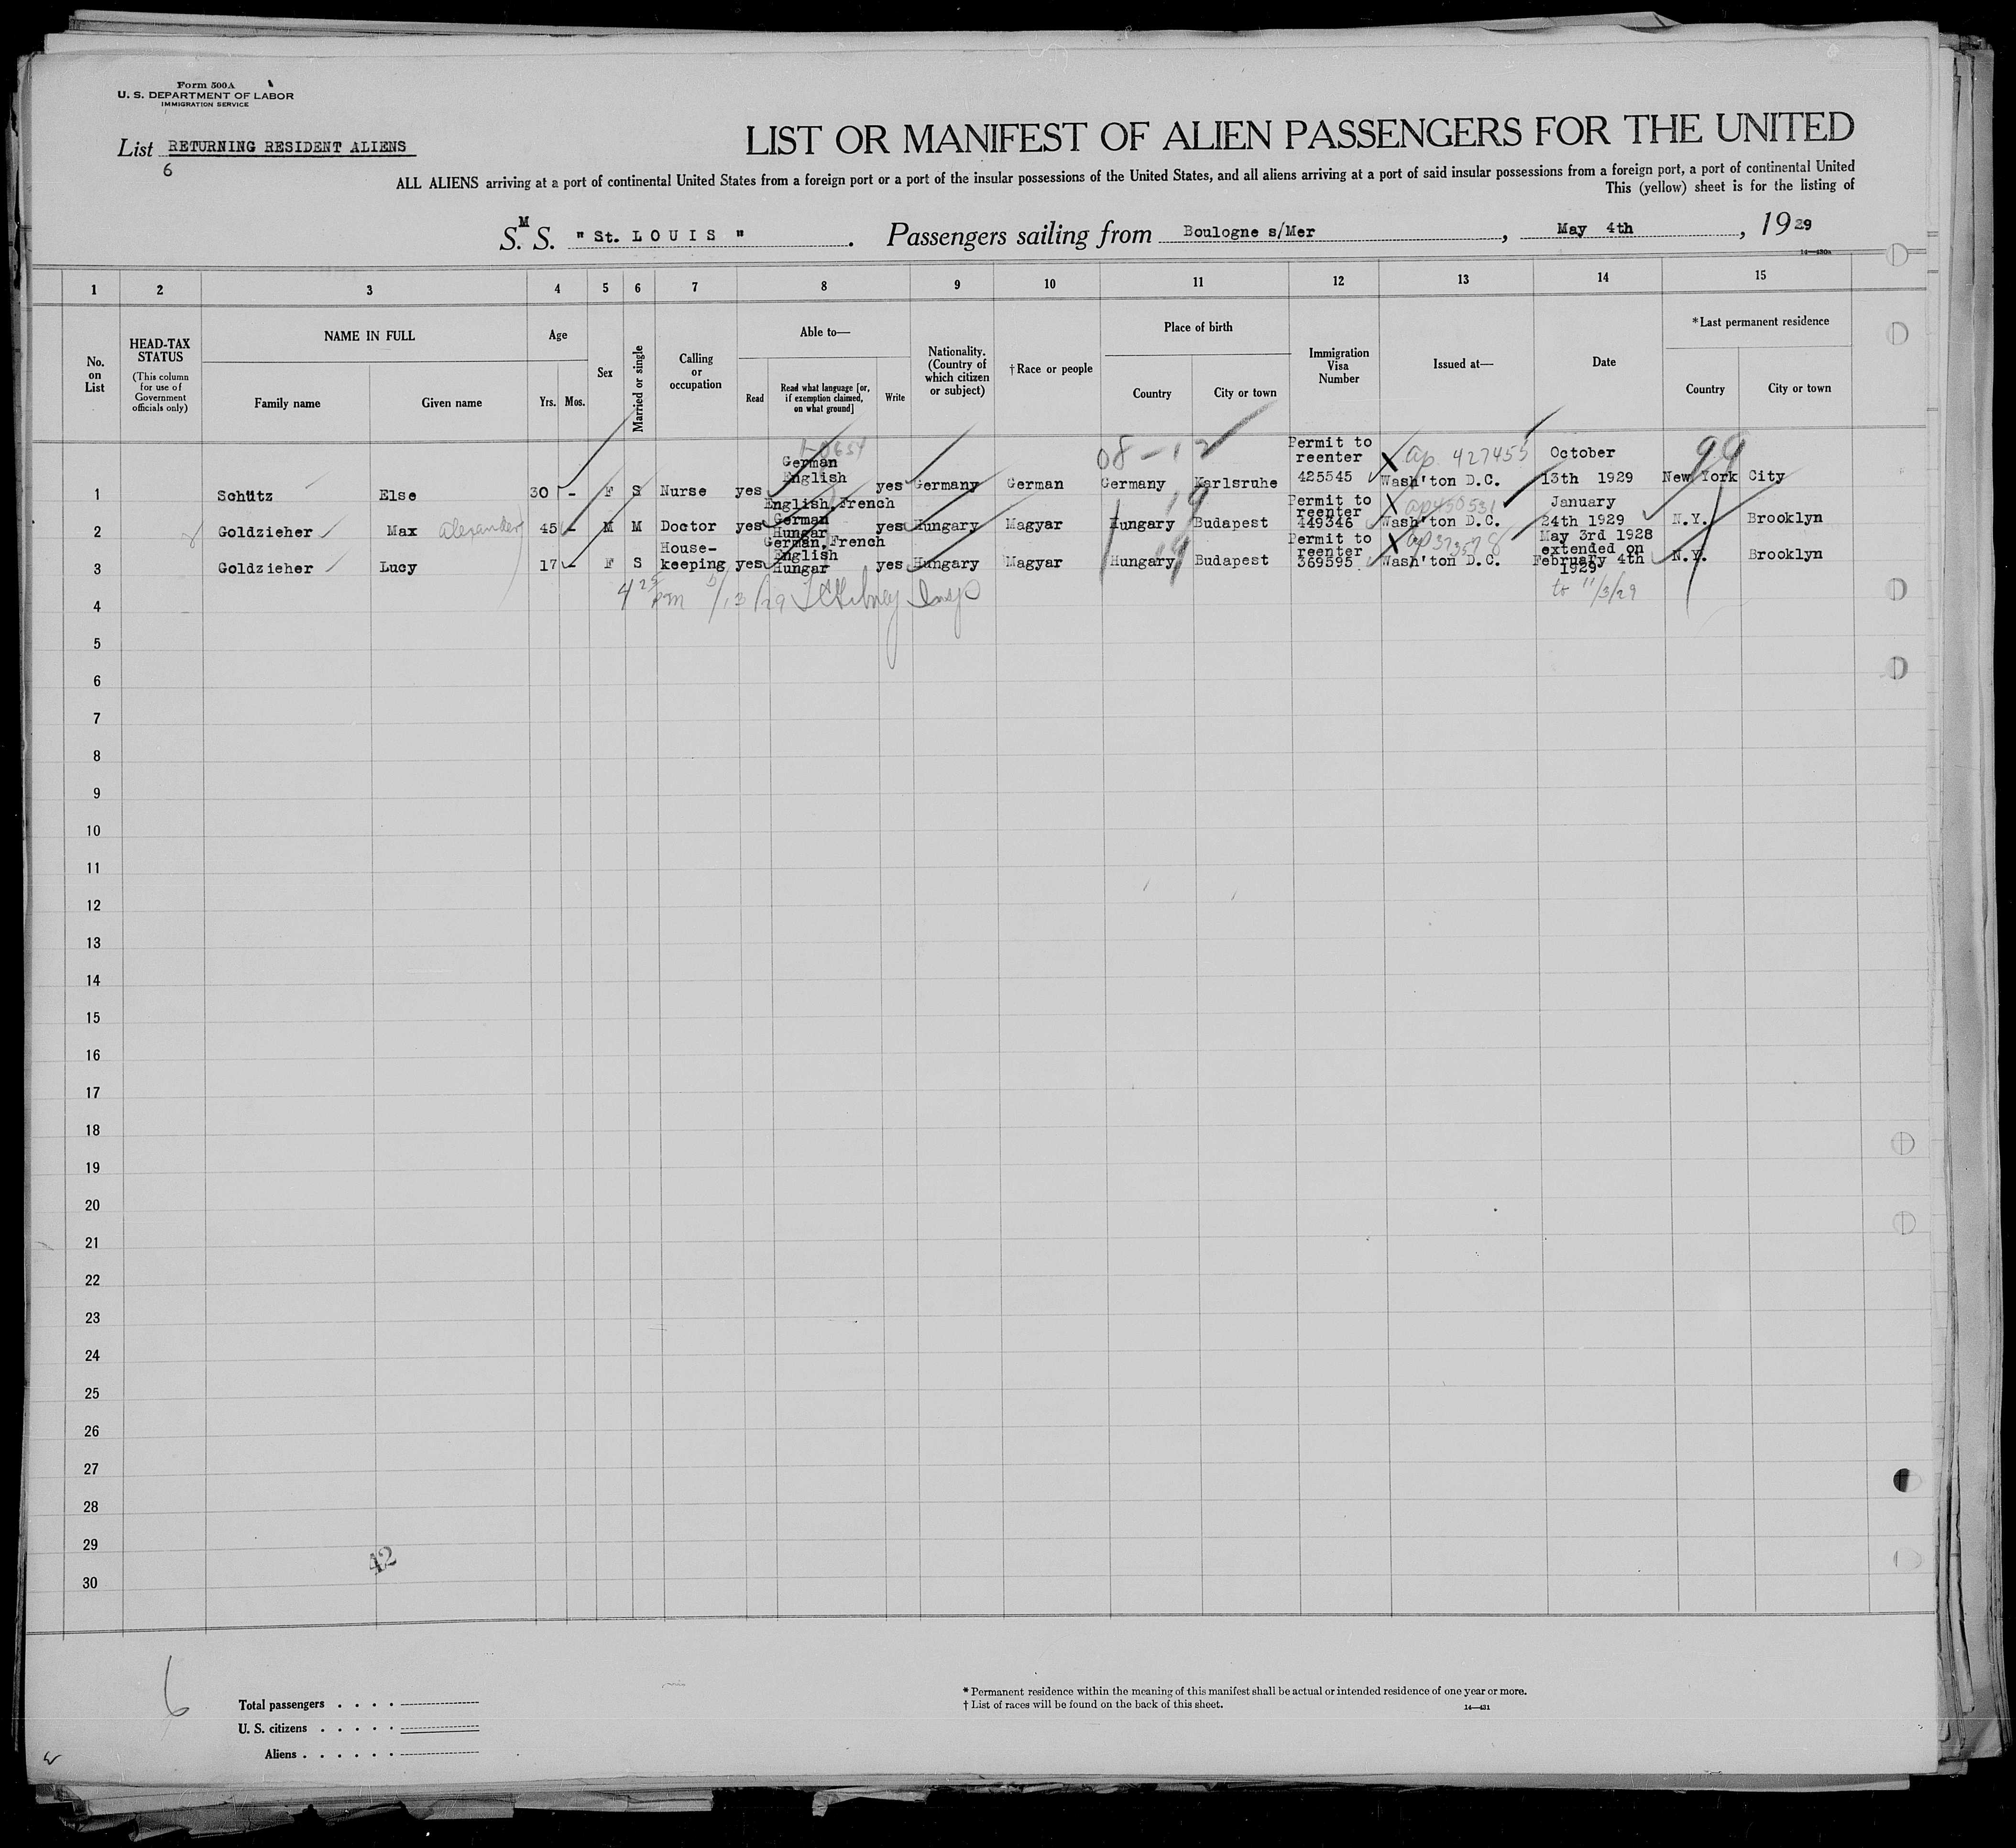 Form 500A
U. S. DEPARTMENT OF LABOR
IMMIGRATION SERVICE
List RETURNING RESIDENT ALIENS
6
LIST OR MANIFEST OF ALIEN PASSENGERS FOR THE UNITED
ALL ALIENS arriving at a port of continental United States from a foreign port or a port of the insular possessions of the United States, and all aliens arriving at a port of said insular possessions from a foreign port, a port of continental United
This (yellow) sheet is for the listing of
M
S. S. " St. L O U I S " . Passengers sailing from Boulogne s/Mer , May 4th , 1929
14—430a
1 2 3 4 5 6 7 8 9 10 11 12 13 14 15
No. on List
HEAD-TAX STATUS
(This column for use of Government officials only)
NAME IN FULL
Family name Given name
Age
Yrs. Mos.
Sex
Married or single
Calling or occupation
Able to—
Read
Read what language [or, if exemption claimed, on what ground]
Write
Nationality. (Country of which citizen or subject)
†Race or people
Place of birth
Country City or town
Immigration Visa Number
Issued at—
Date
*Last permanent residence
Country City or town
1 Schütz Else 30 - F S Nurse yes German English yes Germany German Germany Karlsruhe Permit to reenter 425545 Wash'ton D.C. October 13th 1929 New York City
08-12 X ap. 427455 99
2 Goldzieher Max Alexander 45 - M M Doctor yes English, French German Hungar yes Hungary Magyar Hungary Budapest Permit to reenter 449346 Wash'ton D.C. January 24th 1929 N.Y. Brooklyn
X ap450531
3 Goldzieher Lucy 17 - F S House-keeping yes German, French English Hungar yes Hungary Magyar Hungary Budapest Permit to reenter 369595 Wash'ton D.C. May 3rd 1928 extended on February 4th 1929 N.Y. Brooklyn
X
to 11/3/29
4 25 pm 5/13/29 Insp
4
5
6
7
8
9
10
11
12
13
14
15
16
17
18
19
20
21
22
23
24
25
26
27
28
29
30
42
6
Total passengers . . . .
U. S. citizens . . . . .
Aliens . . . . . .
* Permanent residence within the meaning of this manifest shall be actual or intended residence of one year or more.
† List of races will be found on the back of this sheet.
14—431